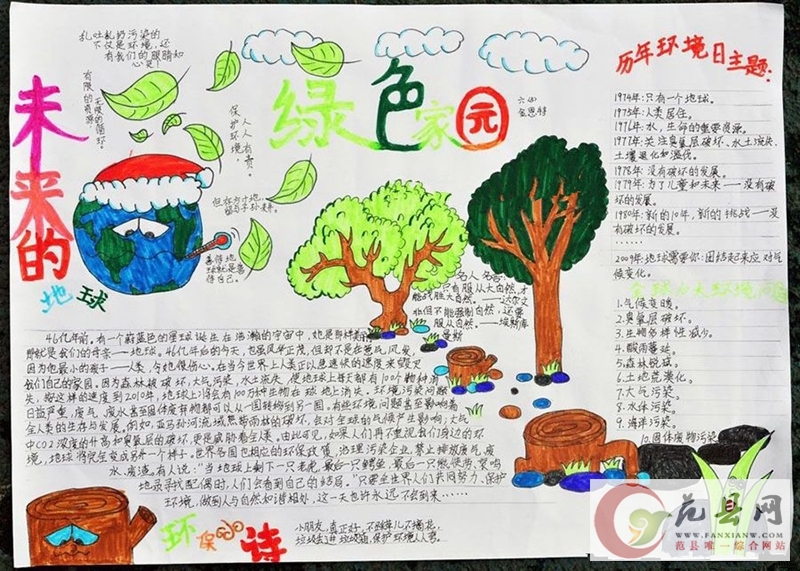 乱吐乱扔污染的
不仅是环境，还
有我们的眼睛和
心灵！
有限的资源
无限的循环。
保护环境
人人有责。
绿色家园
六四
但存方寸地，
留与子孙来。
善待地
球就是善
待自己。
未来的
地球
名人名言
只有服从大自然，才
能战胜大自然。——达尔文
非但不能强制自然，还要
服从自然。——埃斯库
罗斯
历年环境日主题：
1974年：只有一个地球。
1975年：人类居住。
1976年：水，生命的重要资源。
1977年：关注臭氧层破坏、水土流失、
土壤退化和滥伐。
1978年：没有破坏的发展。
1979年：为了儿童和未来——没有破
坏的发展。
1980年：新的10年，新的挑战——没有
破坏的发展。
……
2009年：地球需要你：团结起来应对气
候变化。
全球十大环境问题
1.气候变暖。
2.臭氧层破坏。
3.生物多样性减少。
4.酸雨蔓延。
5.森林锐减。
6.土地荒漠化。
7.大气污染。
8.水体污染。
9.海洋污染。
10.固体废物污染
46亿年前，有一个蔚蓝色的星球诞生在浩瀚的宇宙中，她是那样
那就是我们的母亲——地球。46亿年后的今天，也虽风华正茂，但却不是在笑
因为他最小的孩子——人类，令她很伤心。在当今世界上人类正以惊速快的速度来毁灭
我们自己的家园，因为森林被破坏，大气污染，水土流失，使地球上每天都有100个物种消
失，按这样的速度到2010年，地球上将会有100万种生物在地球上消失。环境污染问题
日益严重，废气、废水甚至固体废物都可以从一国转移到另一国。有些环境问题甚至影响着
全人类的生存与发展。例如，亚马孙河流域热带雨林的破坏，会对全球的气候产生影响；大气
中CO2浓度的升高和臭氧层的破坏更是威胁着全球。由此可见，如果人们再不重视我们身边的环
境，地球将完全变成另外一个样子。世界各国也相应的环保政策，治理污染企业，禁止排放废气、废
水、废渣。有人说：“当地球上剩下一只老虎，最后一只鳄鱼，最后一只熊猫
地寻找配偶时，人们会看到自己的结局。”只要全世界人们共同努力，保护
环境，做到人与自然和谐相处，这一天也许永远不会到来……
环保小诗
小朋友，真正好，不踩草儿不摘花，
垃圾丢进垃圾箱，保护环境人人夸。
范县网
WWW.FANXIANW.COM
范县唯一综合网站